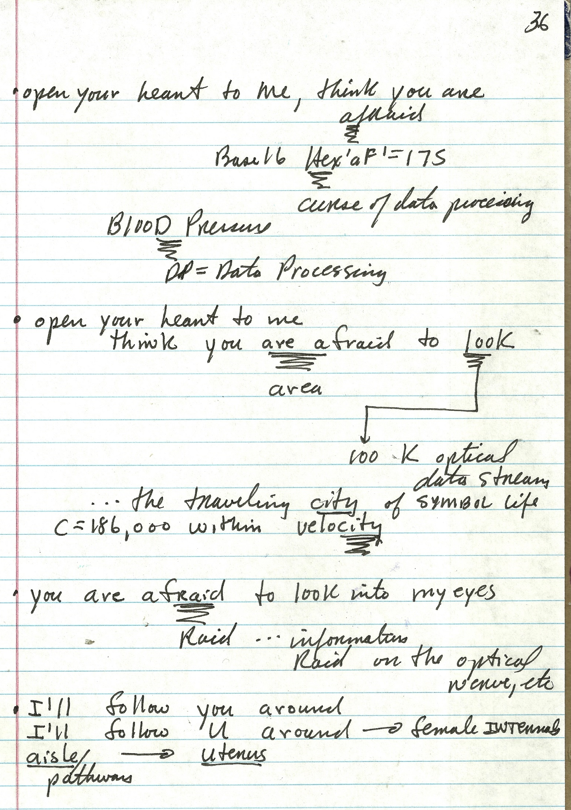 36
• open your heart to me, think you are
afraid
Base 16 Hex 'aF' = 175
curse of data processing
BlOOD Pressure
DP = Data Processing
• open your heart to me
think you are afraid to 100K
area
100 K optical
data stream
... the traveling city of SYMBOL life
C = 186,000 within velocity
• you are afraid to 100K into my eyes
Raid ... information
Raid on the optical
nerve, etc
• I'll follow you around
I'll follow U around → female INTERNALS
aisle/ → uterus
pathways